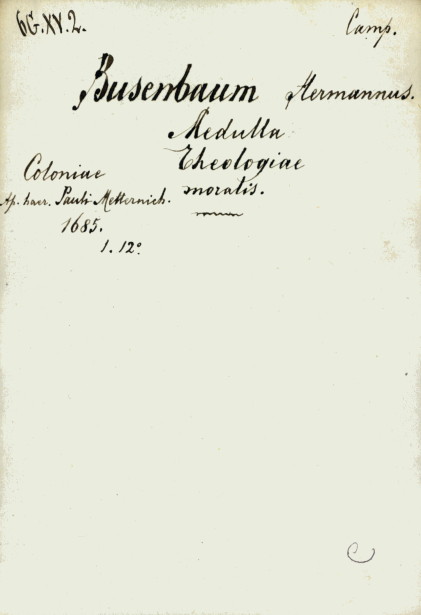 6G.XV.2.
Camp.
Busenbaum Hermannus.
Medulla
Theologiae
moralis.
Coloniae
Ap. haer. Pauli Metternich.
1685.
1. 12º